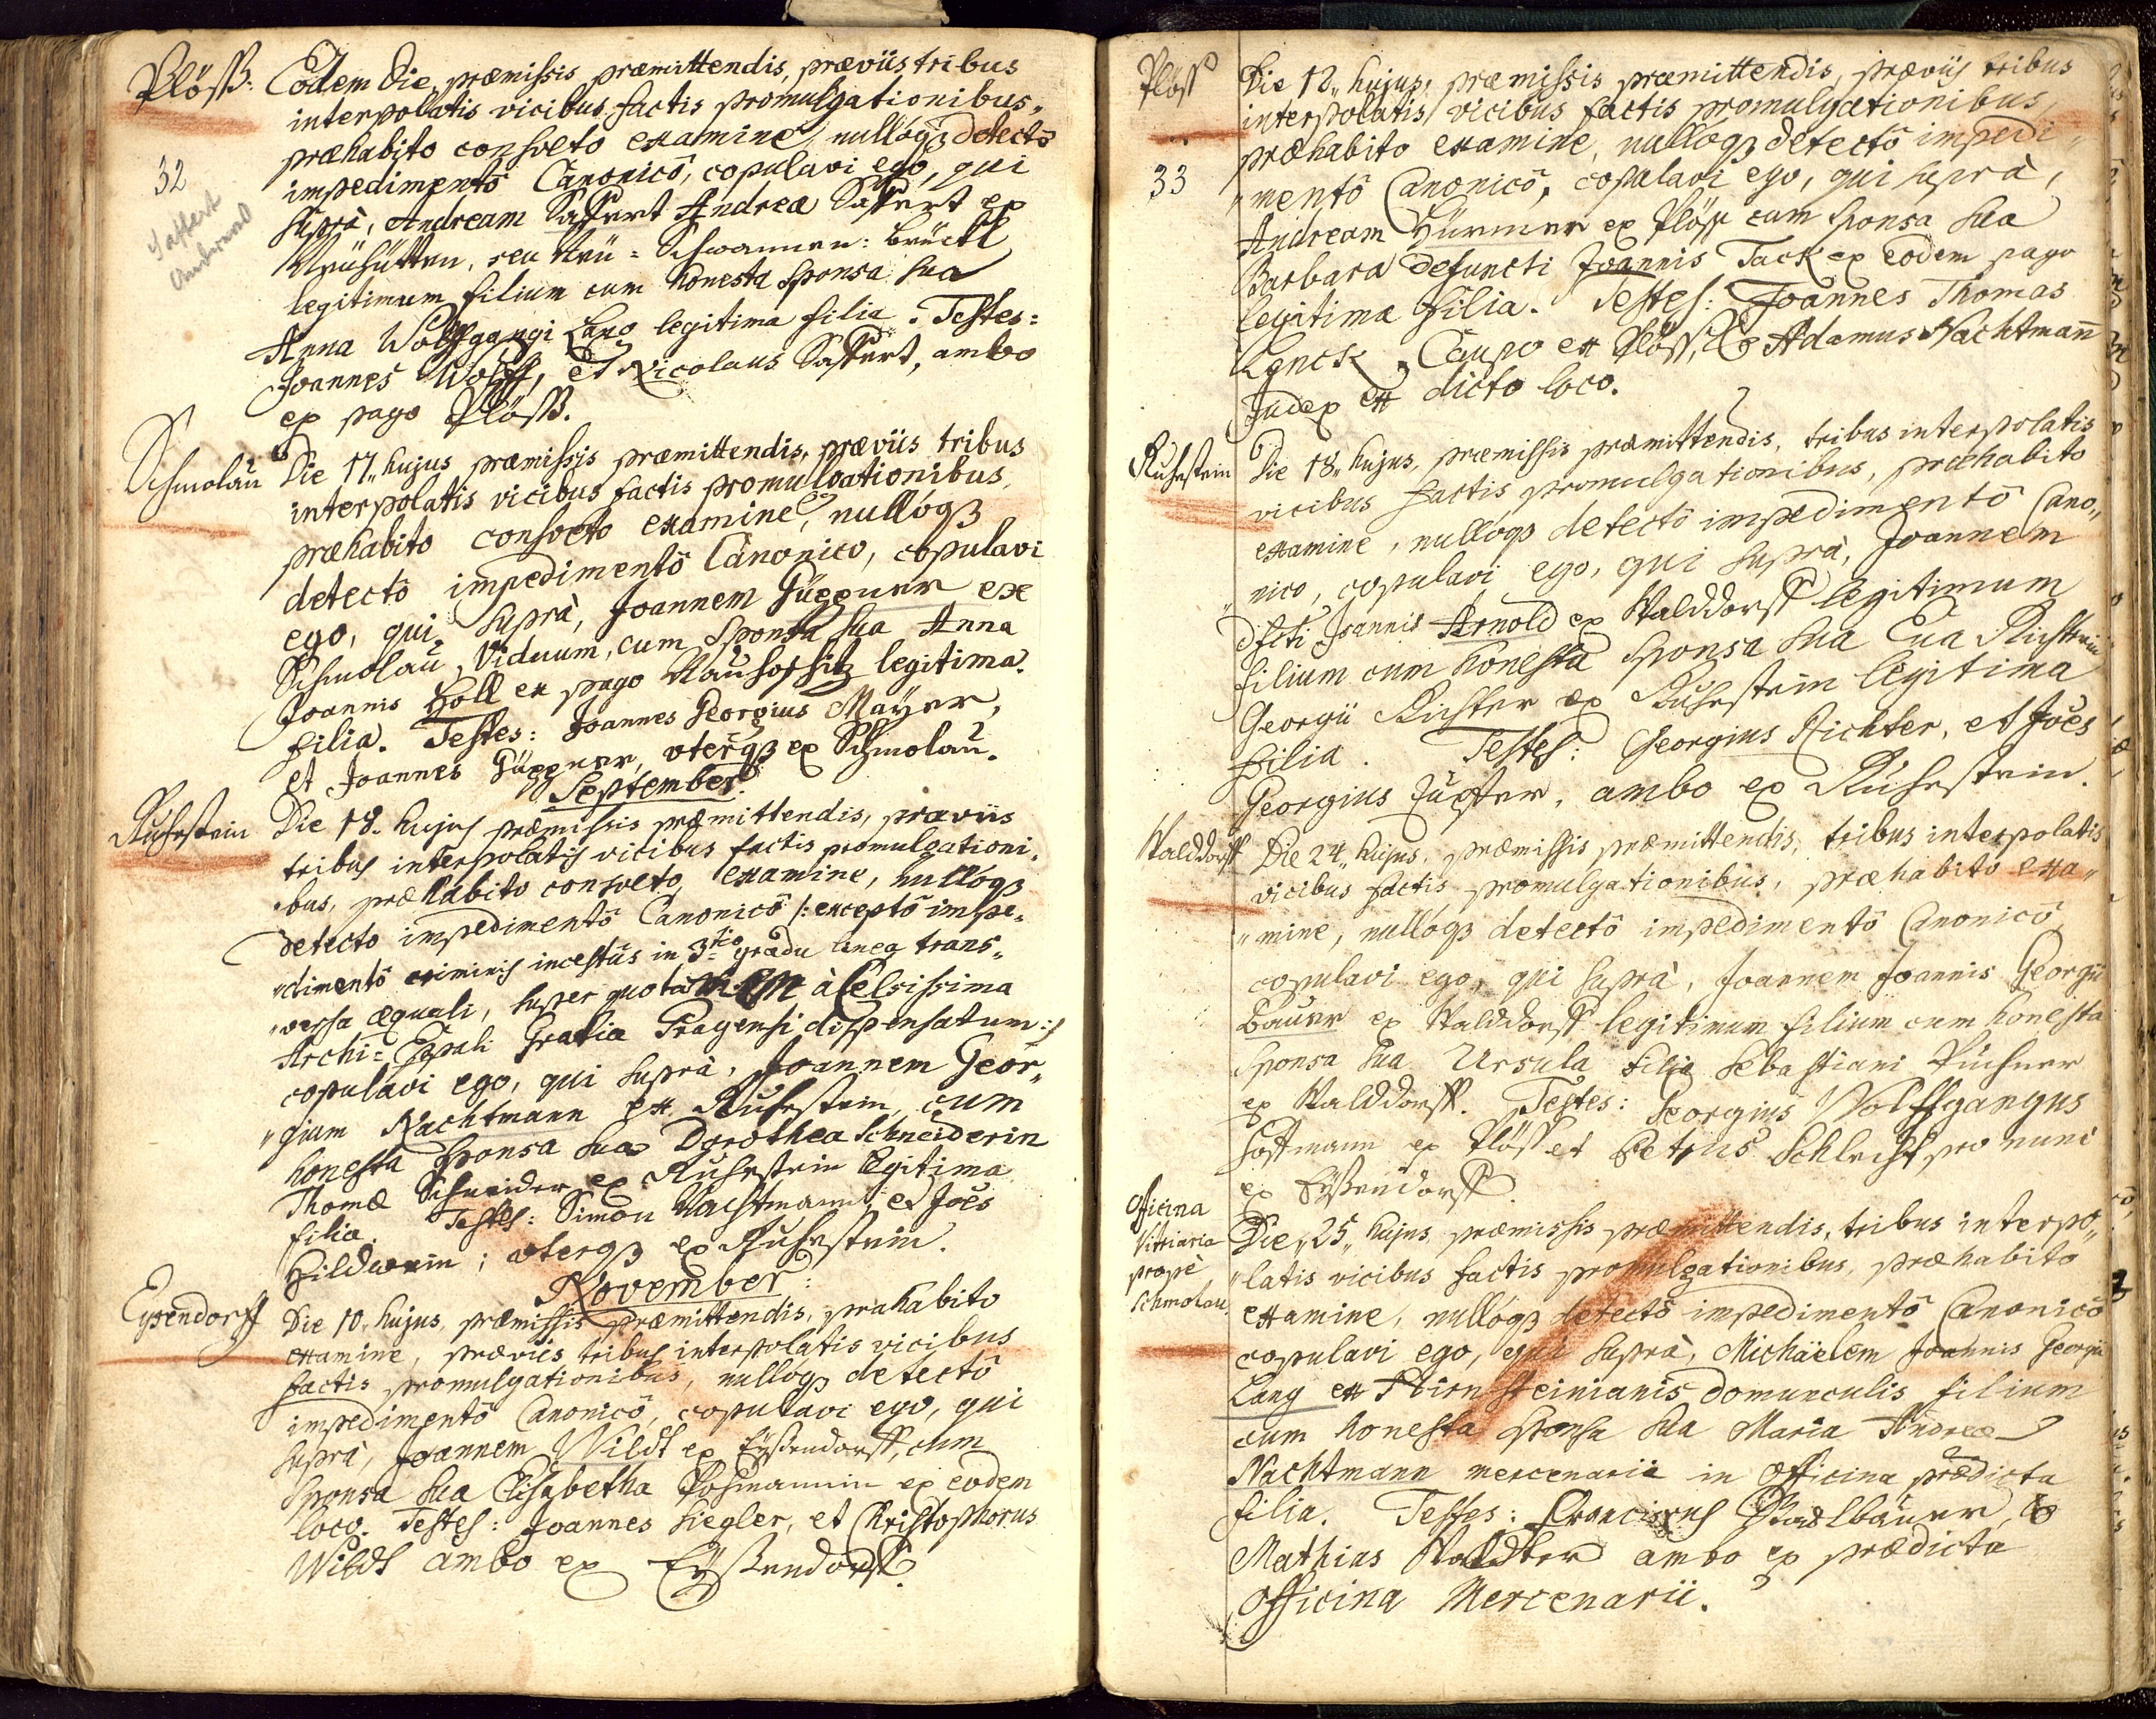 Plöss: Eodem die, præmissis præmittendis, præviis tribus
interpolatis vicibus factis promulgationibus,
præhabito consveto examine, nullóq₃ detectô
32
impedimentô Canonicô, copulavi ego, qui
Saffert
suprà, Andream Saffert Andreæ Saffert ex
Neühütten, seu Neü=Schwannen:brückl
legitimum filium cum honesta sponsa sua
Anna Wolffgangi Lang legitima filia. Testes:
Joannes Wolff, et Nicolaus Saffert, ambo
ex pago Plöss.
Schmolau Die 17. hujus præmissis præmittendis, præviis tribus
interpolatis vicibus factis promulgationibus,
præhabito consveto examine, nullóq₃
detectô impedimentô Canonico, copulavi
ego, qui suprà, Joannem ex
Schmolau, Viduum, cum sponsa sua Anna
Joannis Holl ex pago legitima
filia. Testes: Joannes Georgius Mayer,
et Joannes uterq₃ ex Schmolau.
September.
Ruhestein Die 18. hujus præmissis præmittendis, præviis
tribus interpolatis vicibus factis promulgationi„
„bus, præhabito consveto examine, nullóq₃
detecto impedimentô Canonicô /:exceptô impe„
„dimentô criminis incestûs in 3tio gradu linea trans„
„versa æquali, super quo à Celsissima
Archi=Eppali Gratia Pragensi dispensatum:/
copulavi ego, qui suprà, Joannem Geor„
„gium Nachtmann ex Ruhestein, cum
honesta sponsa sua Dorothea Schneiderin
Thomæ Schneider ex Ruhestein legitima
filia. Testes: Simon Nachtmann, et Joês
Hildwein; uterq₃ ex Ruhestein.
November:
Eysendorff Die 10. hujus, præmissis præmittendis, præhabito
examine, præviis tribus interpolatis vicibus
factis promulgationibus, nullóq₃ detectô
impedimentô Canonicô, copulavi ego, qui
suprà, Joannem Wildt ex Eyssendorff, cum
sponsa sua Elisabetha ex eodem
loco. Testes: Joannes Siegler, et Christophorus
Wildt ambo ex Eyssendorff.
Plöss Die 12. hujus, præmissis præmittendis, præviis tribus
interpolatis vicibus factis promulgationibus,
præhabito examine, nullóq₃ detectô impedi„
33 „mentô Canonicô, copulavi ego, qui suprà,
Andream Hürmer ex Plöss cum sponsa sua
Barbara defuncti Joannis Tack ex eodem pago
legitima filia. Testes: Joannes Thomas
Lenck, Caupo ex Plöss, & Adamus Nachtmann
Judex ex dicto loco.
Ruhestein Die 18. hujus, præmissis præmittendis, tribus interpolatis
vicibus factis promulgationibus, præhabito
examine, nullóq₃ detectô impedimentô Cano„
„nico, copulavi ego, qui suprà, Joannem
dfcti Joannis Arnold ex Walddorff legitimum
filium cum honesta sponsa sua Eva Richterin
Georgii Richter ex Ruhestein legitima
filia. Testes: Georgius Richter, et Joês
Georgius ambo ex Ruhestein.
Walddorff Die 24. hujus, præmissis præmittendis, tribus interpolatis
vicibus factis promulgationibus, præhabito exa„
„mine, nullóq₃ detectô impedimentô Canonicô
copulavi ego, qui suprà, Joannem Joannis Georgii
Bauer ex Walddorff legitimum filium cum honesta
sponsa sua Ursula filia Sebastiani Püchner
ex Walddorff. Testes: Georgius Wolffgangus
Hoffmann ex Plöss et Petrus Schlecht pro nunc
ex Eyssendorff.
Officina
Vitriaria
prope
Schmolau.
Die 25. hujus præmissis præmittendis, tribus interpo„
„latis vicibus factis promulgationibus, præhabito
examine, nullóq₃ detectô impedimentô Canonicô
copulavi ego, qui suprà, Michäelem Joannis Georgii
Lang ex Stirnsteinianis domunculis filium
cum honesta sponsa sua Maria Andreæ
Nachtmann mercenarii in Officina prædicta
filia. Testes: Franciscus Stadlbauer, &
Mathias ambo ex prædicta
Officina Mercenarii.